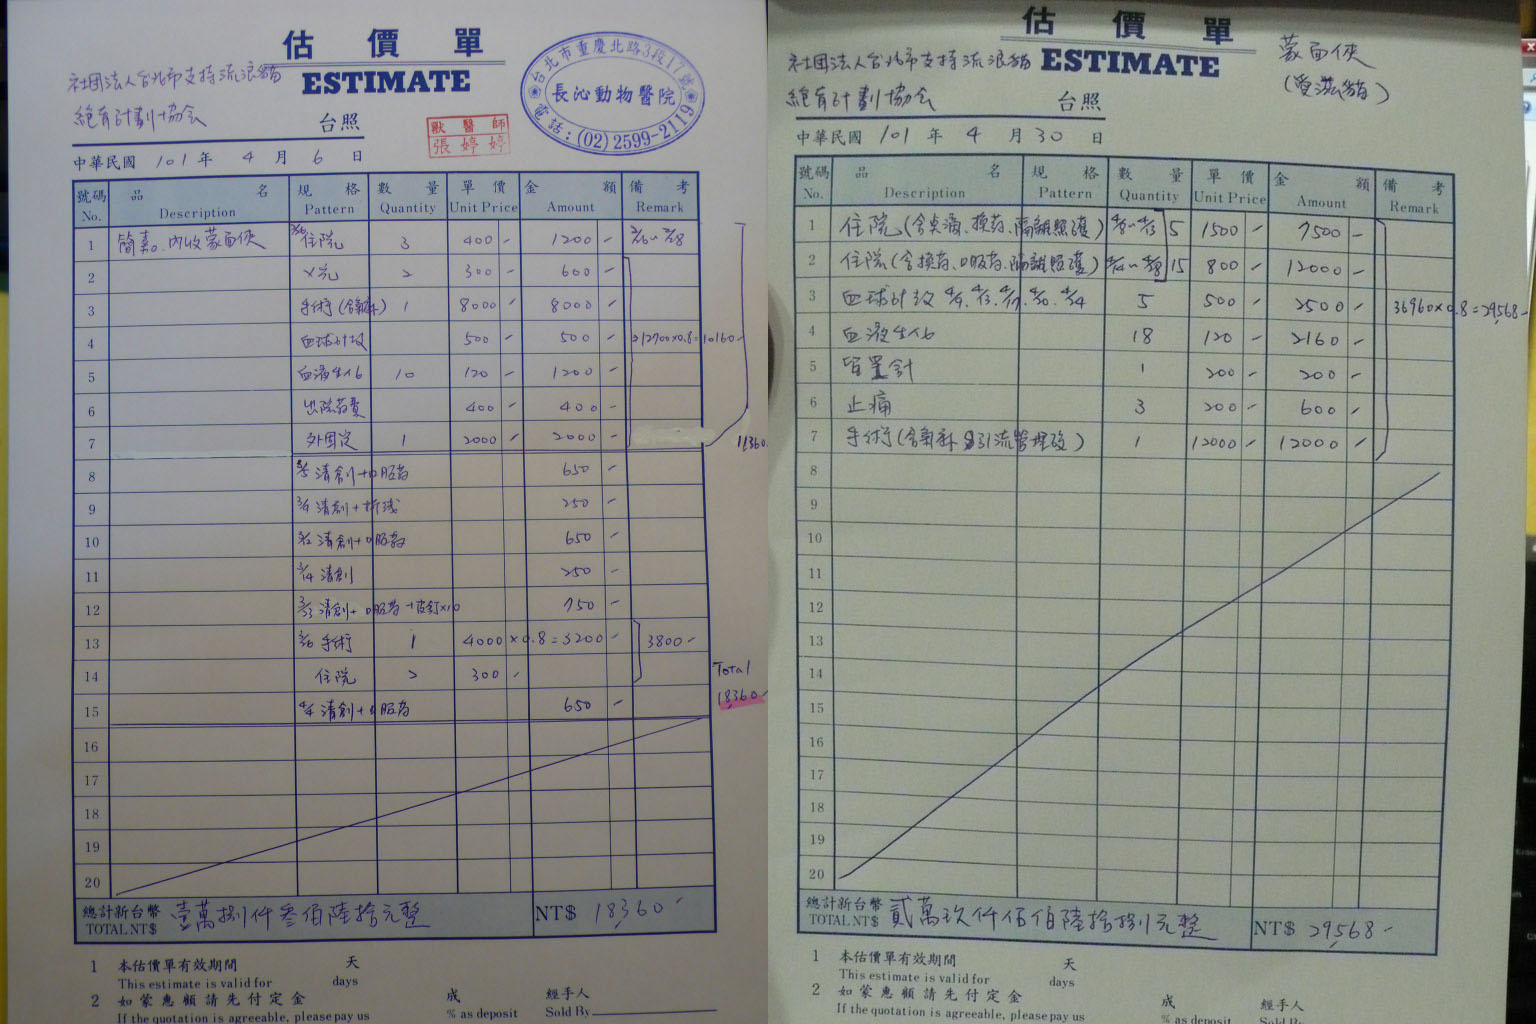 估價單
ESTIMATE
社團法人台北市支持流浪貓
絕育計劃協会
台照
台北市重慶北路3段17號
長沁動物醫院
電話:(02)2599-2119
獸醫師
張婷婷
中華民國 101 年 4 月 6 日
號碼 品名 規格 數量 單價 金額 備考
No. Description Pattern Quantity Unit Price Amount Remark
1 住院 3 400 - 1200 -
2 X光 2 300 - 600 -
3 手術(含氣麻) 1 8000 - 8000 -
4 血球計数 500 - 500 - 12700×0.8=10160-
5 血液生化 10 120 - 1200 -
6 出院葯費 400 - 400 -
7 外固定 1 2000 - 2000 - 11360
8 清創+口服葯 650 -
9 清創+拆线 250 -
10 清創+口服葯 650 -
11 清創 250 -
12 清創+口服葯+皮釘×10 750 -
13 手術 1 4000×0.8=3200 - 3800-
14 住院 2 300 -
Total
18,360-
15 4/4 清創+口服葯 650 -
16
17
18
19
20
總計新台幣 壹萬捌仟叁佰陸拾元整
TOTAL NT$ NT$ 18,360-
1 本估價單有效期間 天
This estimate is valid for days
2 如蒙惠顧請先付定金 成 經手人
If the quotation is agreeable, please pay us % as deposit Sold By
估價單
ESTIMATE
蒙面俠
(愛滋貓)
社団法人台北市支持流浪貓
絕育計劃協会
台照
中華民國 101 年 4 月 30 日
號碼 品名 規格 數量 單價 金額 備考
No. Description Pattern Quantity Unit Price Amount Remark
1 住院(含点滴、換葯、隔離照護) 5 1500 - 7500 -
2 住院(含換葯、口服葯、隔離照護) 15 800 - 12000 -
3 血球計数 5 500 - 2500 - 36960×0.8=29,568-
4 血液生化 18 120 - 2160 -
5 留置針 1 200 - 200 -
6 止痛 3 200 - 600 -
7 手術(含氣麻 引流管埋設) 1 12000 - 12000 -
8
9
10
11
12
13
14
15
16
17
18
19
20
總計新台幣 貳萬玖仟伍佰陸拾捌元整
TOTAL NT$ NT$ 29,568-
1 本估價單有效期間 天
This estimate is valid for days
2 如蒙惠顧請先付定金 成 經手人
If the quotation is agreeable, please pay us % as deposit Sold By